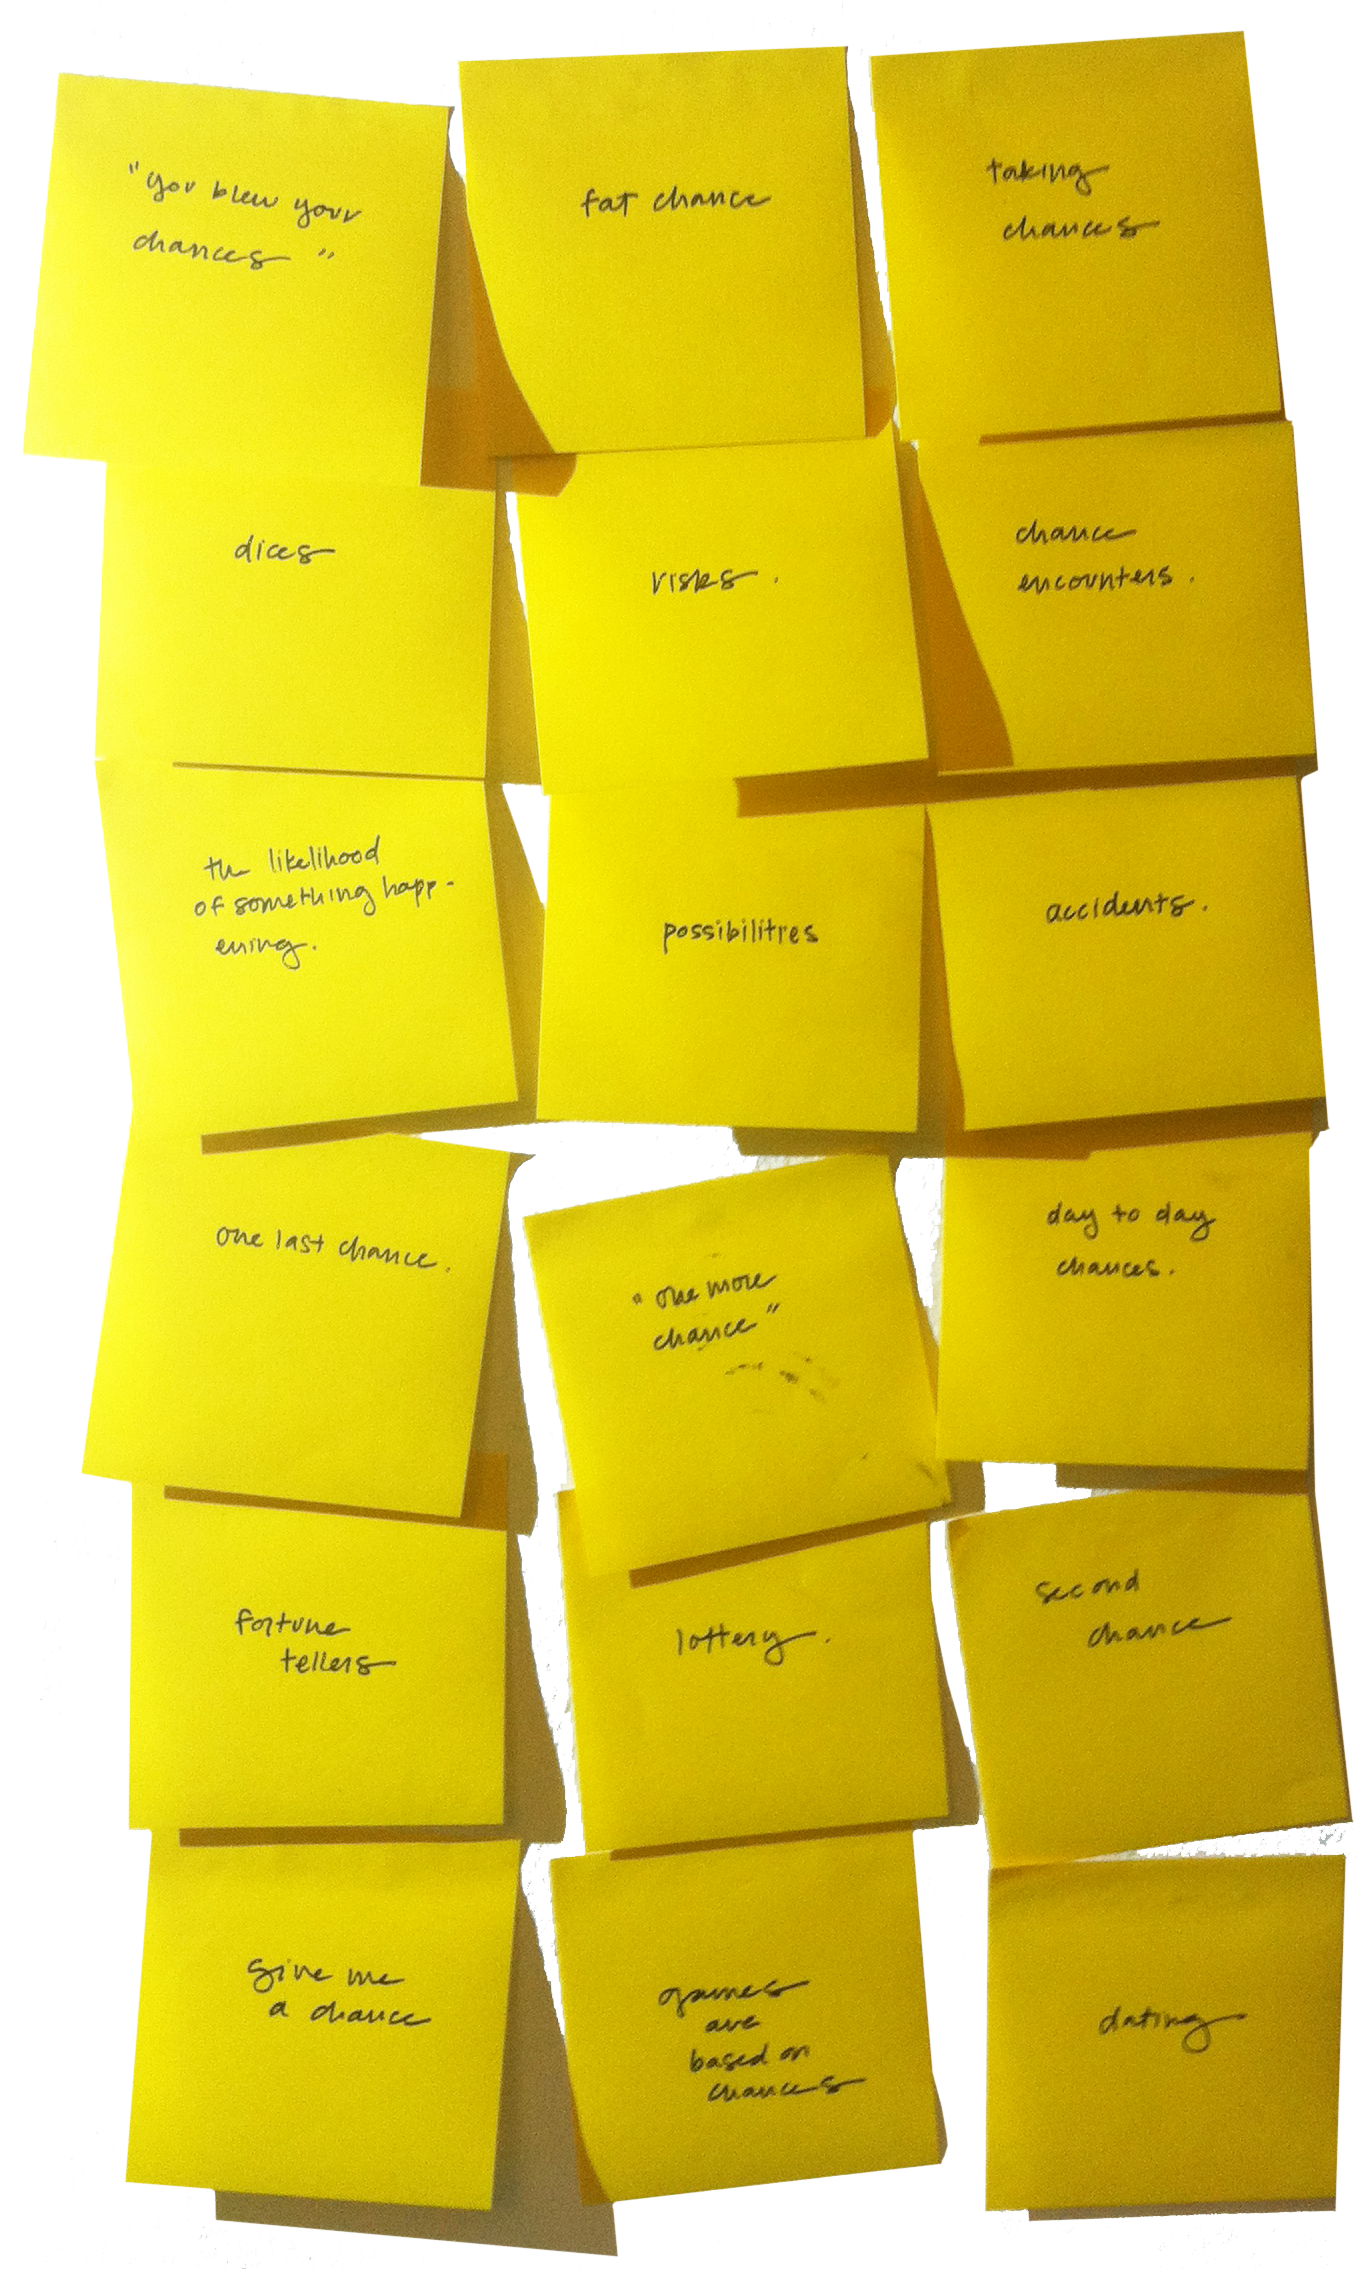 "you blew your
chances"
fat chance
taking
chances
dices
risks.
chance
encounters.
the likelihood
of something happ-
ening.
possibilities
accidents.
one last chance.
"one more
chance"
day to day
chances.
fortune
tellers
lottery.
second
chance
give me
a chance
games
are
based on
chances
dating